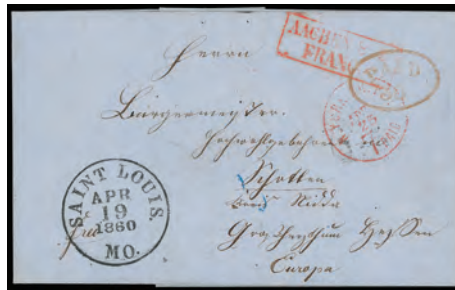 AACHEN
FRANCO
PAID
Herrn
Bürgermeister
Hochwohlgeboren
Schotten
Kreis Nidda
Großherzthum Hessen
Europa
SAINT LOUIS
APR
19
1860
MO.